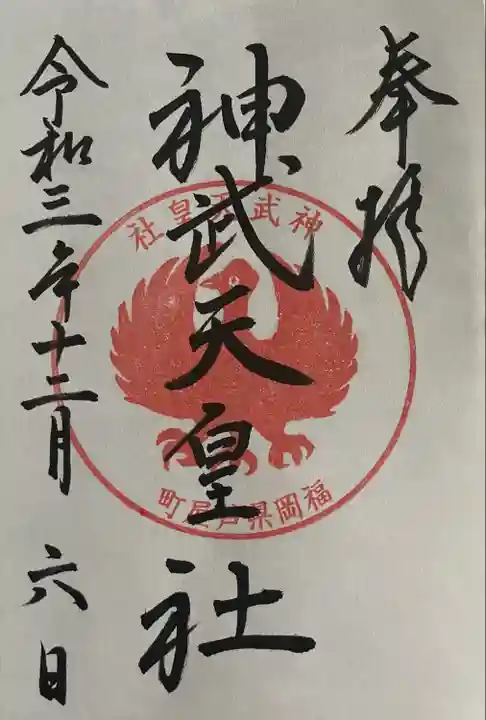 奉拝
神武天皇社
令和三年十二月 六日
神武天皇社
福岡県芦屋町